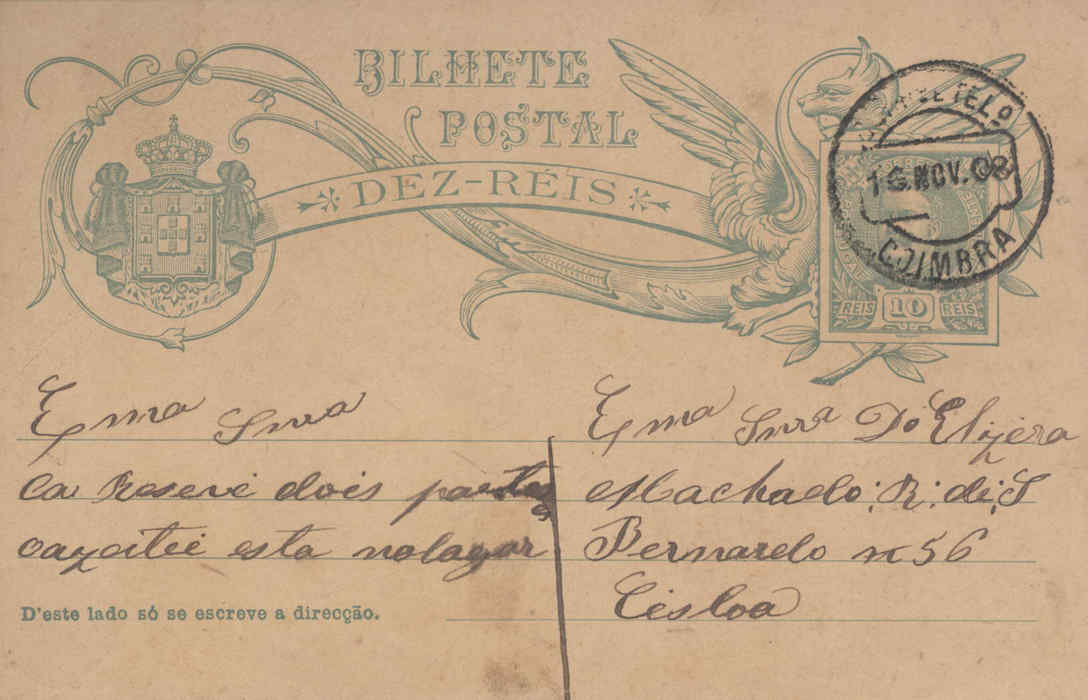 BILHETE
POSTAL
DEZ-RÉIS
16 NOV. 08
COIMBRA
REIS 10 REIS
Exma Snra
ca Reseve dois
oazeitei esta nolagar
Exma Snra Do Elizera
Machado; R: de; S
Bernardo n 56
Lisboa
D'este lado só se escreve a direcção.